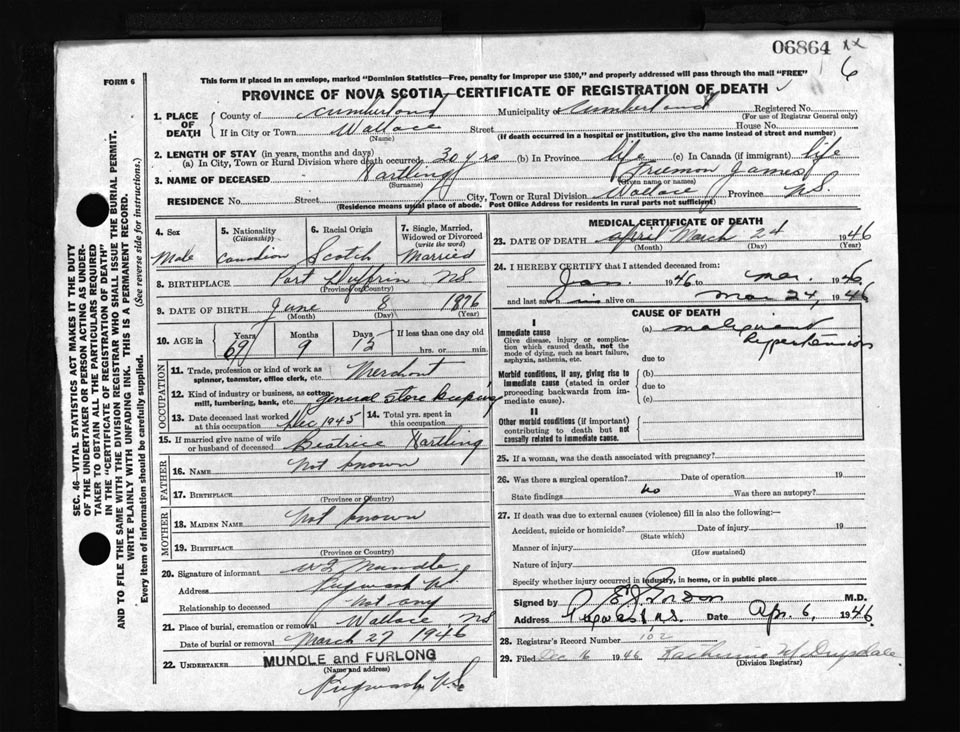 06864
6
FORM 6
This form if placed in an envelope, marked "Dominion Statistics—Free, penalty for improper use $300," and properly addressed will pass through the mail "FREE"
PROVINCE OF NOVA SCOTIA—CERTIFICATE OF REGISTRATION OF DEATH
1. PLACE OF DEATH { County of Cumberland Municipality of Cumberland Registered No.
(For use of Registrar General only)
If in City or Town Wallace Street House No.
(Name) (If death occurred in a hospital or institution, give the name instead of street and number)
2. LENGTH OF STAY (in years, months and days)
(a) In City, Town or Rural Division where death occurred 30 yrs (b) In Province life (c) In Canada (if immigrant) life
3. NAME OF DECEASED Hartling Freemon James
(Surname) (Given name or names)
RESIDENCE No. Street City, Town or Rural Division Wallace Province N.S.
(Residence means usual place of abode. Post Office Address for residents in rural parts not sufficient)
4. Sex Male
5. Nationality (Citizenship) Canadian
6. Racial Origin Scotch
7. Single, Married, Widowed or Divorced (write the word) Married
8. BIRTHPLACE Port Dufferin NS
(Province or Country)
9. DATE OF BIRTH June 8 1876
(Month) (Day) (Year)
10. AGE in Years 69 Months 9 Days If less than one day old
hrs. or min.
OCCUPATION
11. Trade, profession or kind of work as spinner, teamster, office clerk, etc. Merchant
12. Kind of industry or business, as cotton-mill, lumbering, bank, etc. general Store keeping
13. Date deceased last worked at this occupation Dec 1945 14. Total yrs. spent in this occupation
15. If married give name of wife or husband of deceased Beatrice Hartling
FATHER
16. NAME Not known
17. BIRTHPLACE
(Province or Country)
MOTHER
18. MAIDEN NAME Not known
19. BIRTHPLACE
(Province or Country)
20. Signature of informant Mundle
Address Pugwash N.S.
Relationship to deceased Not any
21. Place of burial, cremation or removal Wallace, NS
Date of burial or removal March 27 1946
22. UNDERTAKER MUNDLE and FURLONG
(Name and address)
Pugwash N.S.
MEDICAL CERTIFICATE OF DEATH
23. DATE OF DEATH April March 24 1946
(Month) (Day) (Year)
24. I HEREBY CERTIFY that I attended deceased from:
Jan. 1946 to Mar. 1946
and last saw h im alive on Mar 24, 1946
CAUSE OF DEATH
I
Immediate cause
Give disease, injury or complication which caused death, not the mode of dying, such as heart failure, asphyxia, asthenia, etc.
(a) malignant hypertension
due to
Morbid conditions, if any, giving rise to immediate cause (stated in order proceeding backwards from immediate cause).
(b)
due to
(c)
II
Other morbid conditions (if important) contributing to death but not causally related to immediate cause.
25. If a woman, was the death associated with pregnancy?
26. Was there a surgical operation? Date of operation 19
State findings no Was there an autopsy?
27. If death was due to external causes (violence) fill in also the following:—
Accident, suicide or homicide? Date of injury 19
(State which)
Manner of injury
(How sustained)
Nature of injury
Specify whether injury occurred in industry, in home, or in public place
Signed by Gordon M.D.
Address Pugwash N.S. Date Apr. 6, 1946.
28. Registrar's Record Number 102
29. Filed Dec 16 1946 Katherine M Drysdale
(Division Registrar)
SEC. 46—VITAL STATISTICS ACT MAKES IT THE DUTY
OF THE UNDERTAKER OR PERSON ACTING AS UNDER-
TAKER TO OBTAIN ALL THE PARTICULARS REQUIRED
IN THE "CERTIFICATE OF REGISTRATION OF DEATH"
AND TO FILE THE SAME WITH THE DIVISION REGISTRAR WHO SHALL ISSUE THE BURIAL PERMIT.
WRITE PLAINLY WITH UNFADING INK. THIS IS A PERMANENT RECORD.
Every item of information should be carefully supplied. (See reverse side for instructions.)